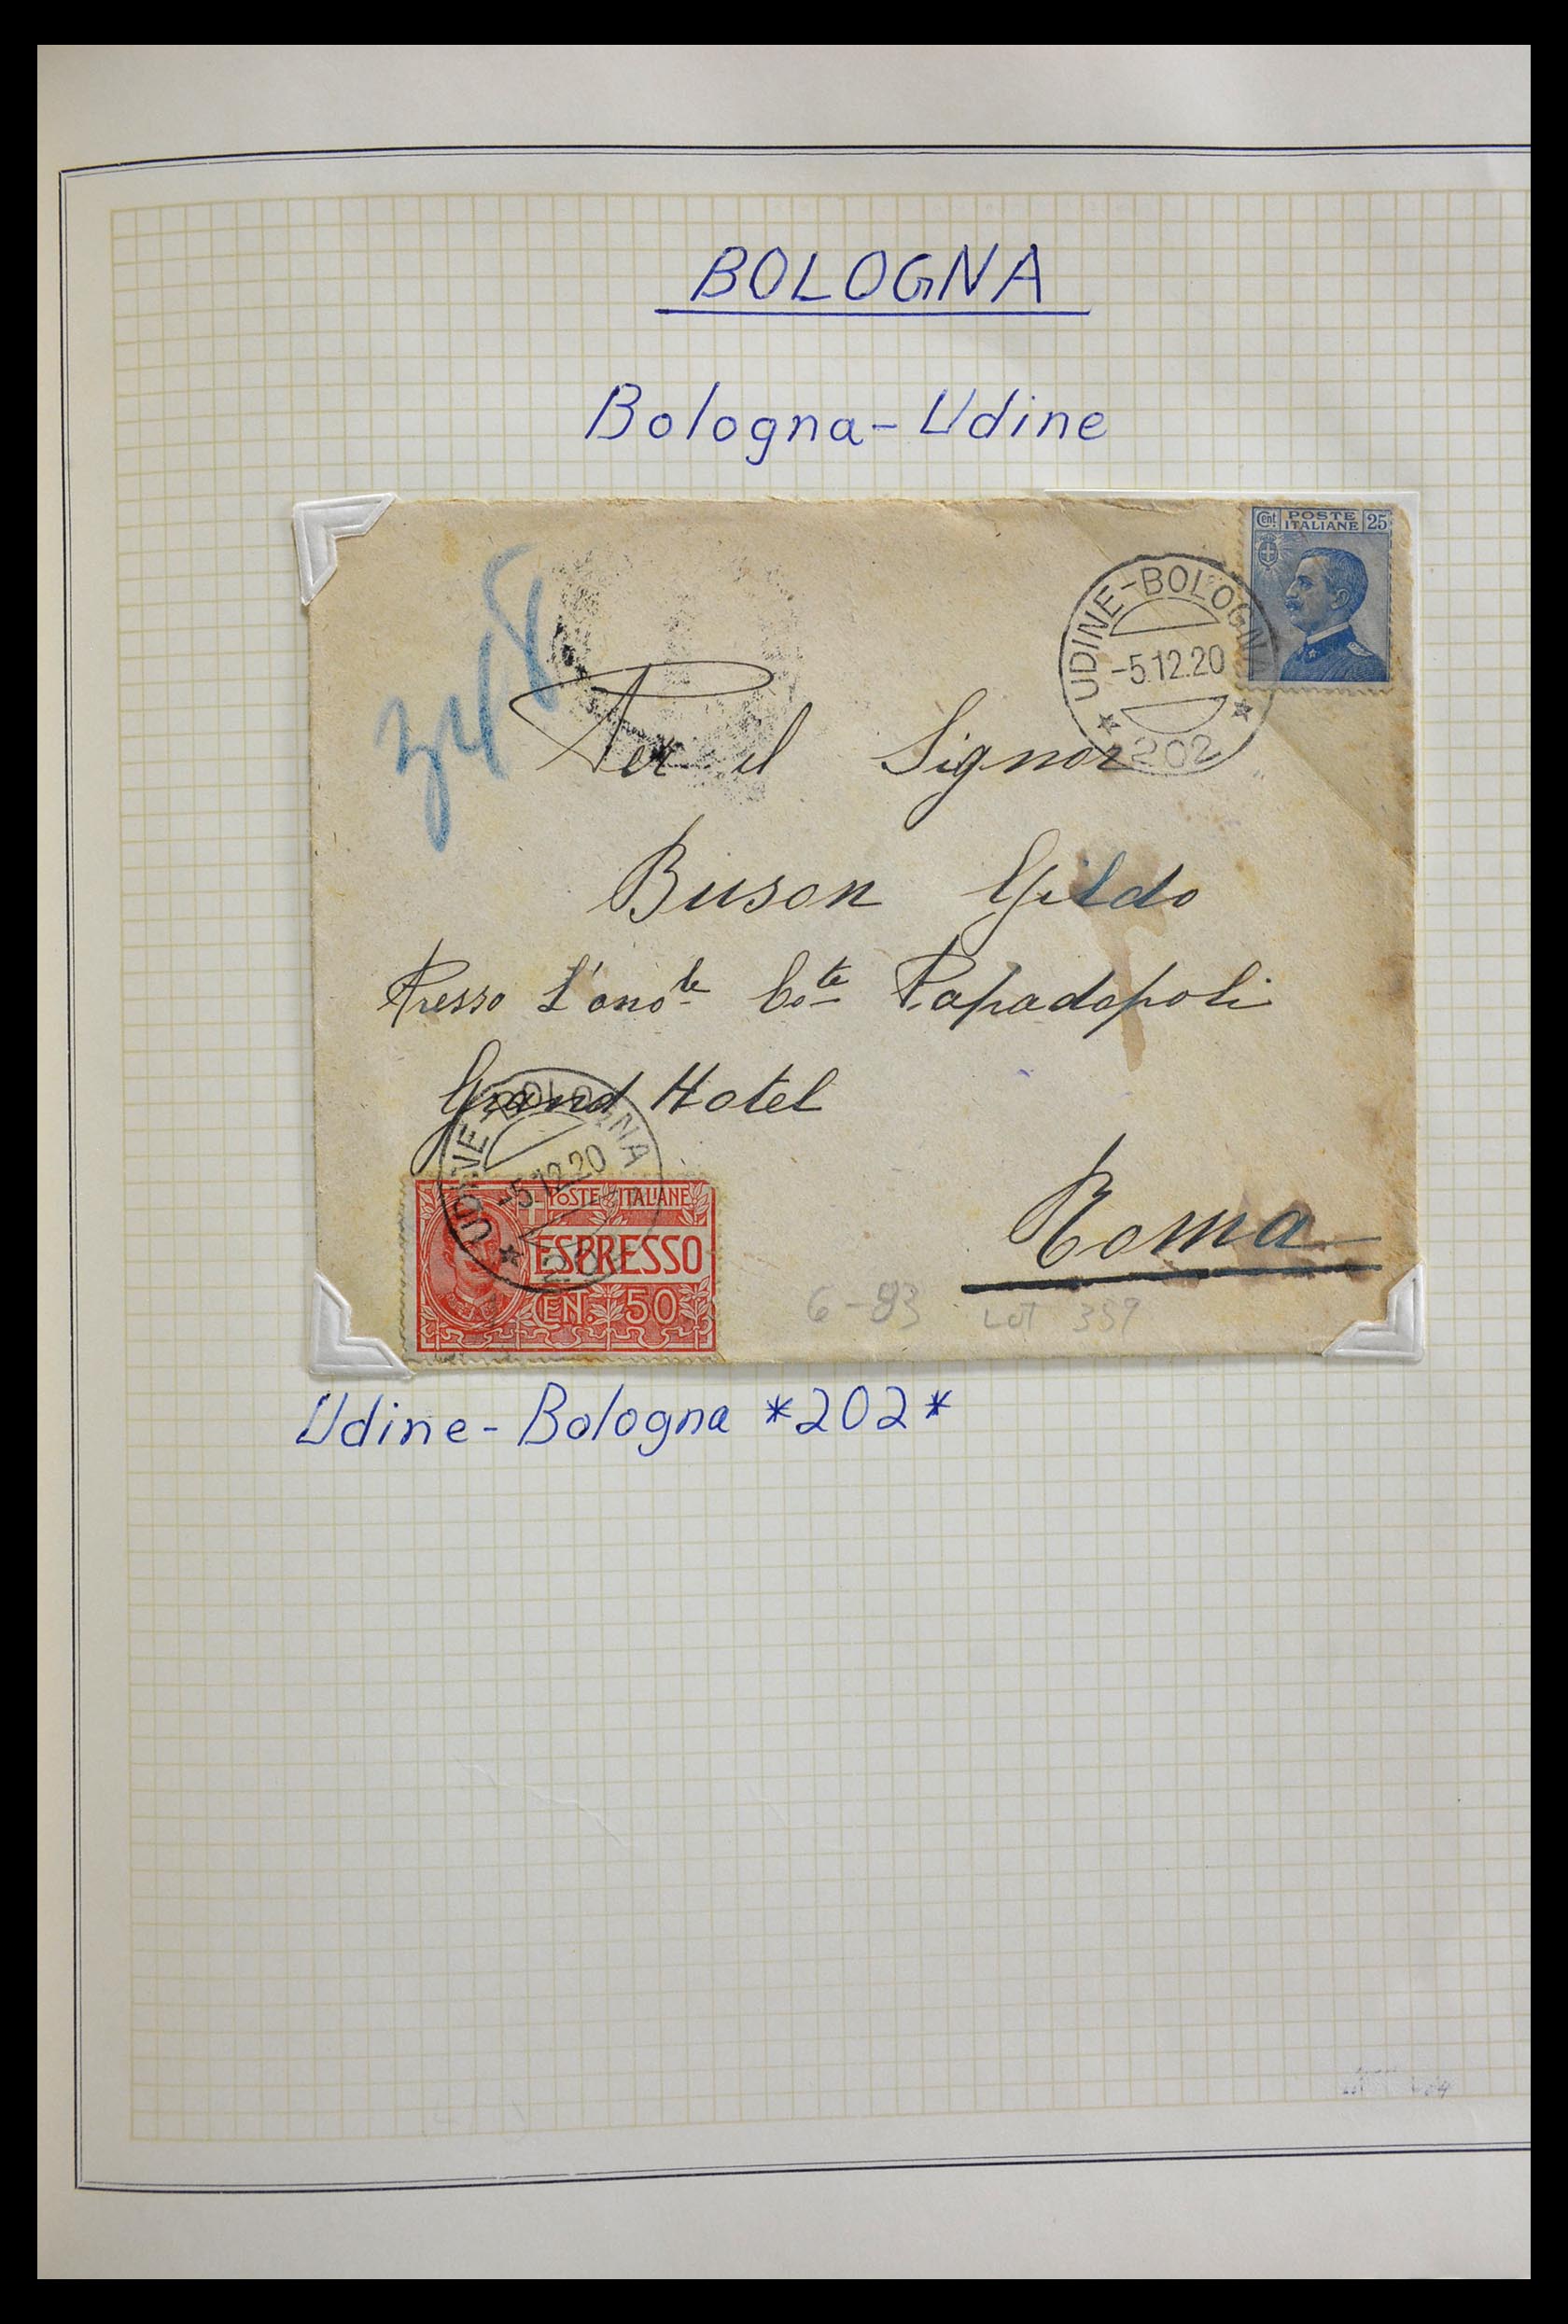 BOLOGNA
Bologna-Udine
Cent. POSTE ITALIANE 25
UDINE-BOLOGNA
-5.12.20
202
348
Per il Signor
Buson Gildo
Presso L'ono^le Co^te Papadopoli
Grand Hotel
Roma
UDINE-BOLOGNA
-5.12.20
POSTE ITALIANE
ESPRESSO
CEN. 50
6-83 LOT 359
Udine-Bologna *202*